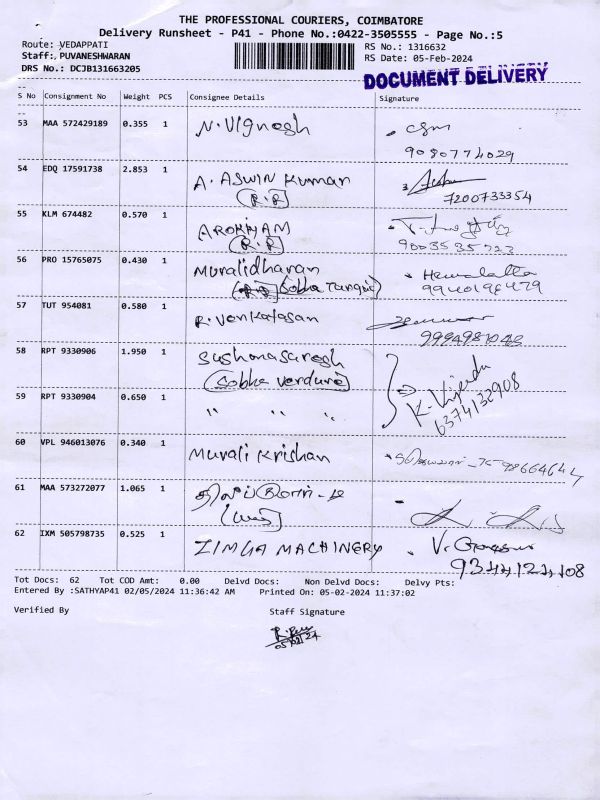 THE PROFESSIONAL COURIERS, COIMBATORE
Delivery Runsheet - P41 - Phone No.:0422-3505555 - Page No.:5
Route: VEDAPPATI RS No.: 1316632
Staff: PUVANESHWARAN RS Date: 05-Feb-2024
DRS No.: DCJB131663205
DOCUMENT DELIVERY
S No Consignment No Weight PCS Consignee Details Signature
53 MAA 572429189 0.355 1 N. Vignesh csm
9080774029
54 EDQ 17591738 2.853 1 A. ASWIN Kumar
(R.R) 7200733354
55 KLM 674482 0.570 1 AROKIYAM
(R.R) 9003535723
56 PRO 15765075 0.430 1 Muralidharan Hemalatha
(Sobha Tanque) 9940196479
57 TUT 954081 0.580 1 R. Venkatasan
9994987043
58 RPT 9330906 1.950 1 Sushonasaregh
(Sobha Verdure) K. Vijendu
59 RPT 9330904 0.650 1 " " " 6374132908
60 VPL 946013076 0.340 1 Murali Krishan 7598664644
61 MAA 573272077 1.065 1
62 IXM 505798735 0.525 1 ZIMGA MACHINERY
9344124108
Tot Docs: 62 Tot COD Amt: 0.00 Delvd Docs: Non Delvd Docs: Delvy Pts:
Entered By :SATHYAP41 02/05/2024 11:36:42 AM Printed On: 05-02-2024 11:37:02
Verified By Staff Signature
05/02/24